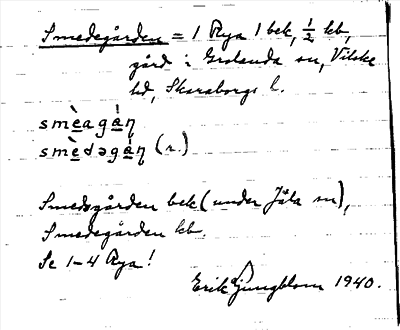 Smedegården = 1 Rya 1 bek, ½ kb,
gård i Grolanda sn, Vilske
hd, Skaraborgs l.
smèagån
smèdəgån (r.)
Smedsgården bek (under Jäla sn),
Smedegården kb.
Se 1-4 Rya!
Erik Ljungblom 1940.